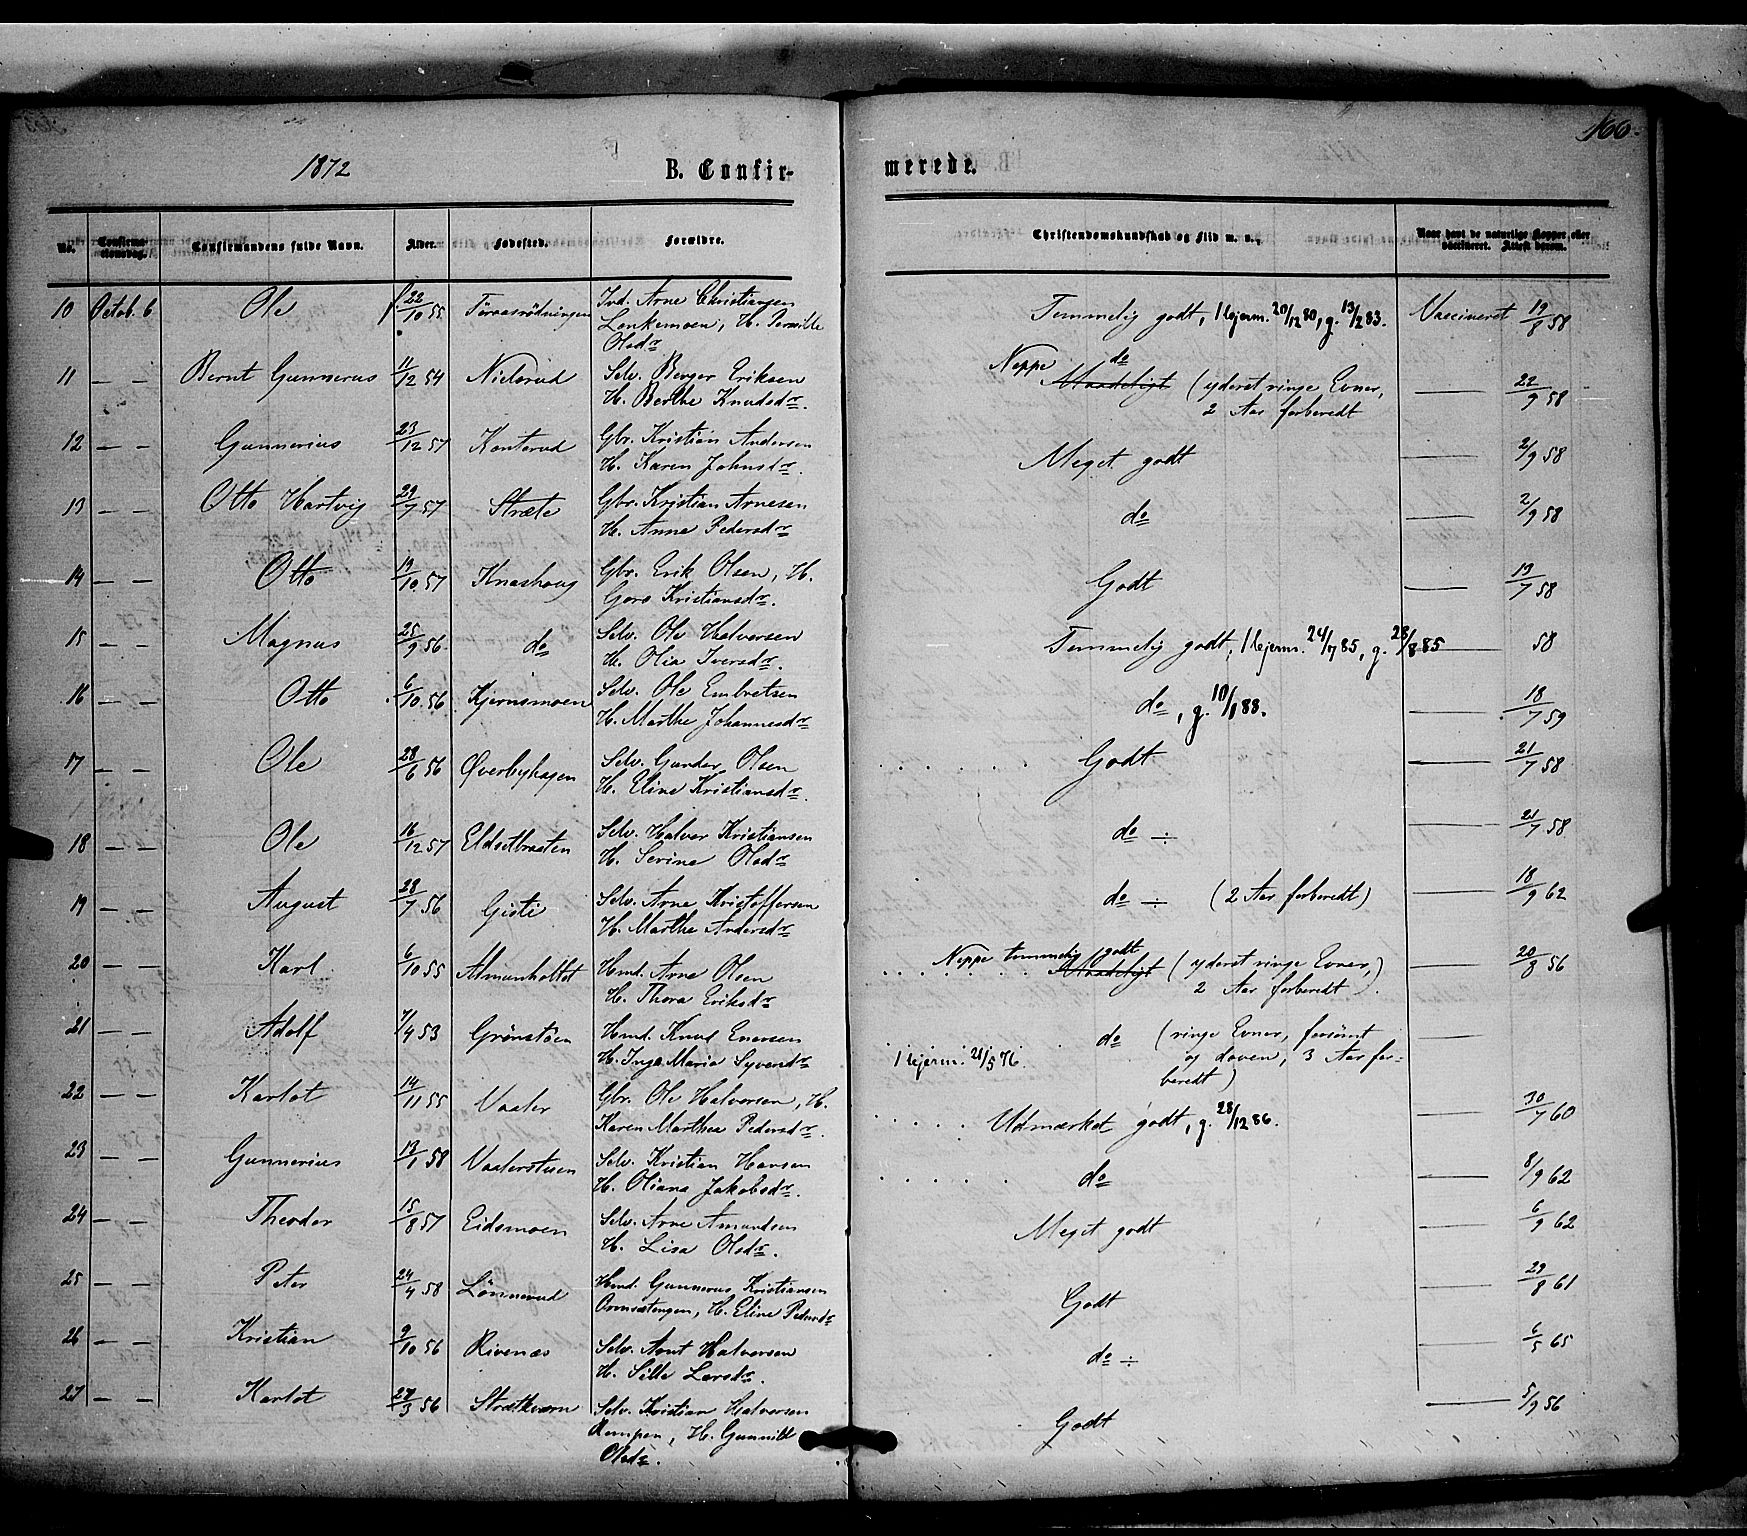 166.
1872
B. Confir-
merede.
No.
Confirma-
tionsdag.
Confirmandens fulde Navn.
Alder.
Fødested.
Forældre.
Christendomskundskab og Flid m. v.
Naar havt de naturlige Kopper eller
vaccineret. Attest derom.
10 Octob. 6 Ole f. 22/10 55 Törrasrödningen Ind. Arne Christiansen
Lenkemoen, H. Pernille
Olsdr
Temmelig godt, 20/12 80, g. 13/2 83. Vaccineret 19/8 58
11 — — Bernt Gunnerus 11/12 54 Nielsrud Selv. Berger Eriksen
H. Berthe Knudsdr.
Neppe do
Maadeligt (yderst ringe Evner,
2 Aar forberedt — 22/9 58
12 — — Gunnerius 23/12 57 Konterud Gbr. Kristian Andersen
H. Karen Johnsdr.
Meget godt — 2/9 58
13 — — Otto Hartvig 29/7 57 Stræte Gbr. Kristian Arnesen
H. Anne Pedersdr
do — 2/9 58
14 — — Otto 19/10 57 Knashoug Gbr. Erik Olsen, H.
Goro Kristiansdr.
Godt — 13/7 58
15 — — Magnus 25/9 56. do Selv. Ole Halversen
H. Olia Iversdr.
Temmelig godt, 24/7 85, g. 28/8 85 — 58
16 — — Otto 6/10 56 Kjernsmoen Selv. Ole Embretsen
H. Marthe Johannesdr
do, g. 10/1 88. — 18/7 59
17 — — Ole 28/6 56 Øverbyhagen Selv. Gunder Olsen
H. Eline Kristiansdr.
Godt — 21/7 58
18 — — Ole 16/12 57 Eldsetbraaten Selv. Halver Kristiansen
H. Serine Olsdr
do ÷ — 21/7 58
19 — — August 28/7 56 Gisti Selv. Arne Kristoffersen
H. Marthe Andersdr
do ÷ (2 Aar forberedt) — 18/9 62
20 — — Karl 6/10 55 Almanholtet Hmd. Arne Olsen
H. Thora Eriksdr
Neppe temmelig godt
Maadeligt (yderst ringe Evner,)
2 Aar forberedt). — 20/8 56
21 — — Adolf 7/4 53 Grønstøen Hmd. Knud Enersen
H. Inga Maria Syversdr
do (ringe Evner, forsømt
og doven, 3 Aar for-
21/5 76.
beredt) —
22 — — Karlot 14/11 55 Vaaler Gbr. Ole Halversen, H.
Karen Marthea Pedersdr.
Udmærket godt, g. 28/12 86. — 30/7 60
23 — — Gunnerius 13/1 58 Vaalerstuen Selv. Kristian Hansen
H. Oliana Jakobsdr.
do — 8/9 62
24 — — Theodor 15/8 57 Eidsmoen Selv. Arne Amundsen
H. Lisa Olsdr.
Meget godt — 6/9 62
25 — — Peter 24/4 58 Lönnerud Hmd. Gunnerus Kristiansen
H. Eline Pedersdr
Godt — 29/8 61
26 — — Kristian 9/10 56 Rivenæs Selv. Arnt Halversen
H. Sille Larsdr.
do ÷ — 6/5 65
27 — — Karlot 27/3 56 Strætkværn Selv. Kristian Halversen
Rempen, H. Gunnild
Olsdr.
Godt — 5/9 56